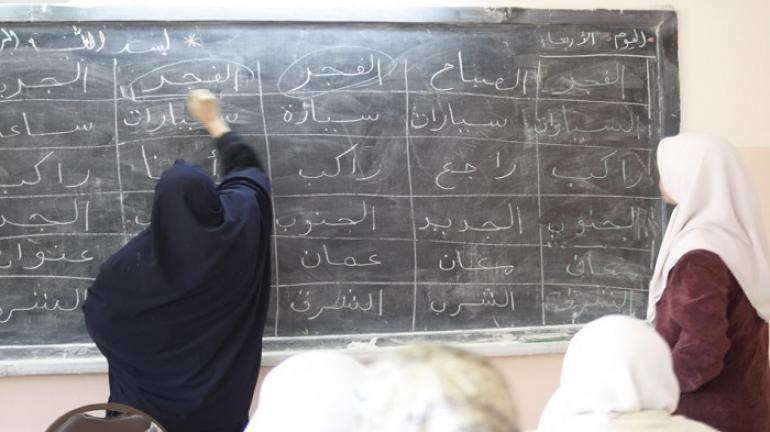 اليوم الأربعاء * بسم الله الر
الفجر الصباح الفجر الفجر الجر
السيارات سيارات سيارة سيارات ساعة
راكب راجع راكب راكب
الجنوب الجديد الجنوب الجد
عمان معان عمان عنوان
الشرق الشرب الشرق الشر